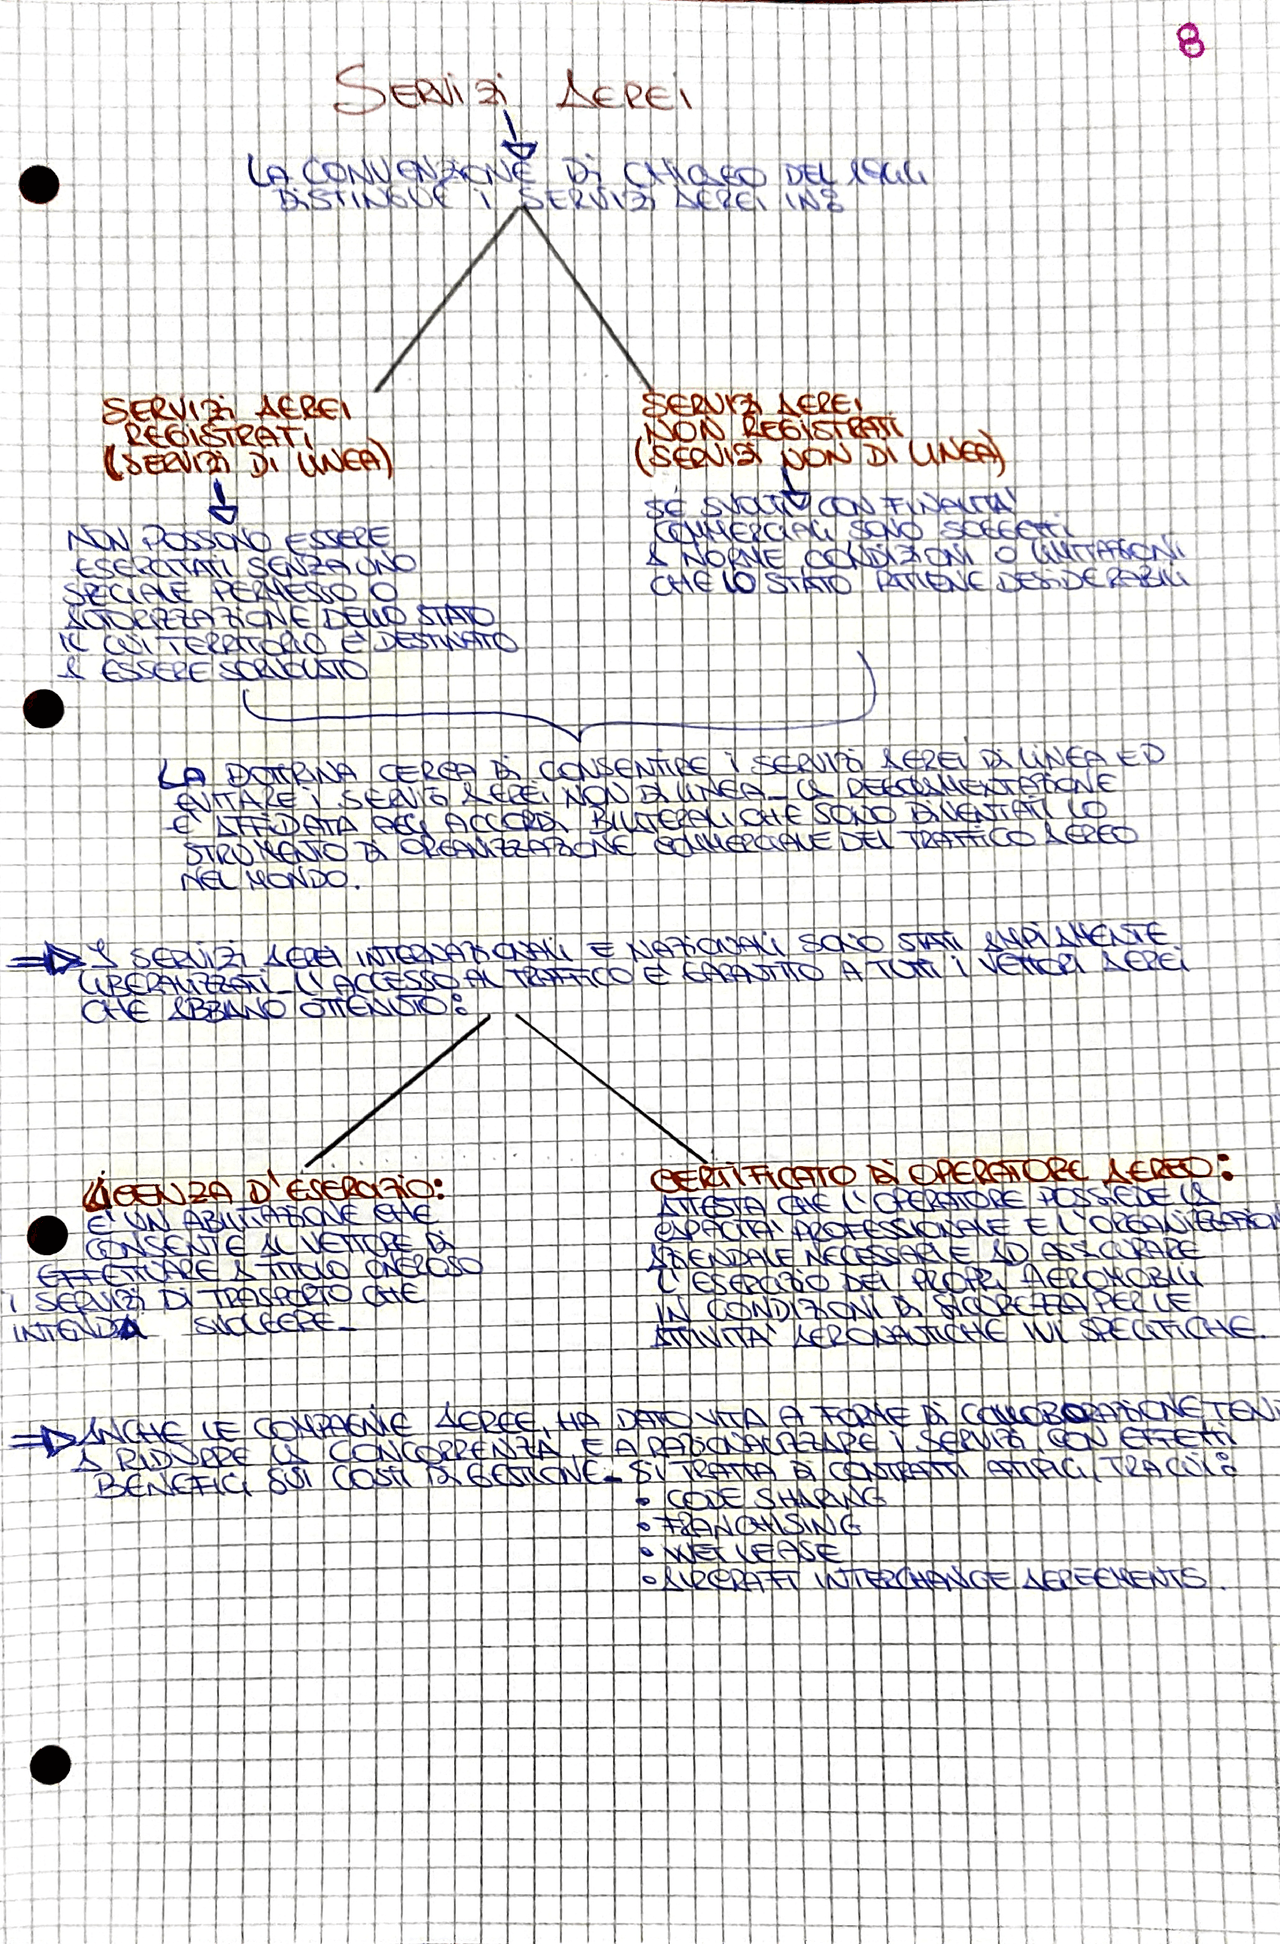 8
SERVIZI AEREI
LA CONVENZIONE DI CHICAGO DEL 1944
DISTINGUE I SERVIZI AEREI IN:
SERVIZI AEREI
REGISTRATI
(SERVIZI DI LINEA)
NON POSSONO ESSERE
ESERCITATI SENZA UNO
SPECIALE PERMESSO O
AUTORIZZAZIONE DELLO STATO
IL CUI TERRITORIO E' DESTINATO
A ESSERE SORVOLATO
SERVIZI AEREI
NON REGISTRATI
(SERVIZI NON DI LINEA)
SE SVOLTI CON FINALITA'
COMMERCIALI SONO SOGGETTI
A NORME CONDIZIONI O LIMITAZIONI
CHE LO STATO RITIENE DESIDERABILI
LA DOTTRINA CERCA DI CONSENTIRE I SERVIZI AEREI DI LINEA ED
EVITARE I SERVIZI AEREI NON DI LINEA_ LA REGOLAMENTAZIONE
E' AFFIDATA AGLI ACCORDI BILATERALI CHE SONO DIVENTATI LO
STRUMENTO DI ORGANIZZAZIONE COMMERCIALE DEL TRAFFICO AEREO
NEL MONDO.
⇒ I SERVIZI AEREI INTERNAZIONALI E NAZIONALI SONO STATI AMPIAMENTE
LIBERALIZZATI_ L'ACCESSO AL TRAFFICO E' GARANTITO A TUTTI I VETTORI AEREI
CHE ABBIANO OTTENUTO:
LICENZA D'ESERCIZIO:
E' UN ABILITAZIONE CHE
CONSENTE AL VETTORE DI
EFFETTUARE A TITOLO ONEROSO
I SERVIZI DI TRASPORTO CHE
INTENDA SVOLGERE_
CERTIFICATO DI OPERATORE AEREO:
ATTESTA CHE L'OPERATORE POSSIEDE LA
CAPACITA' PROFESSIONALE E L'ORGANIZZAZION
AZIENDALE NECESSARIE AD ASSICURARE
L'ESERCIZIO DEI PROPRI AEROMOBILI
IN CONDIZIONI DI SICUREZZA PER LE
ATTIVITA' AERONAUTICHE IVI SPECIFICHE.
⇒ ANCHE LE COMPAGNIE AEREE, HA DATO VITA A FORME DI COLLOBORAZIONE TENI
A RIDURRE LA CONCORRENZA E A RAZIONALIZZARE I SERVIZI, CON EFFETTI
BENEFICI SUI COSTI DI GESTIONE_ SI TRATTA DI CONTRATTI ATIPICI, TRA CUI:
• CODE SHARING
• FRANCHISING
• WET LEASE
• AIRCRAFT INTERCHANGE AGREEMENTS.